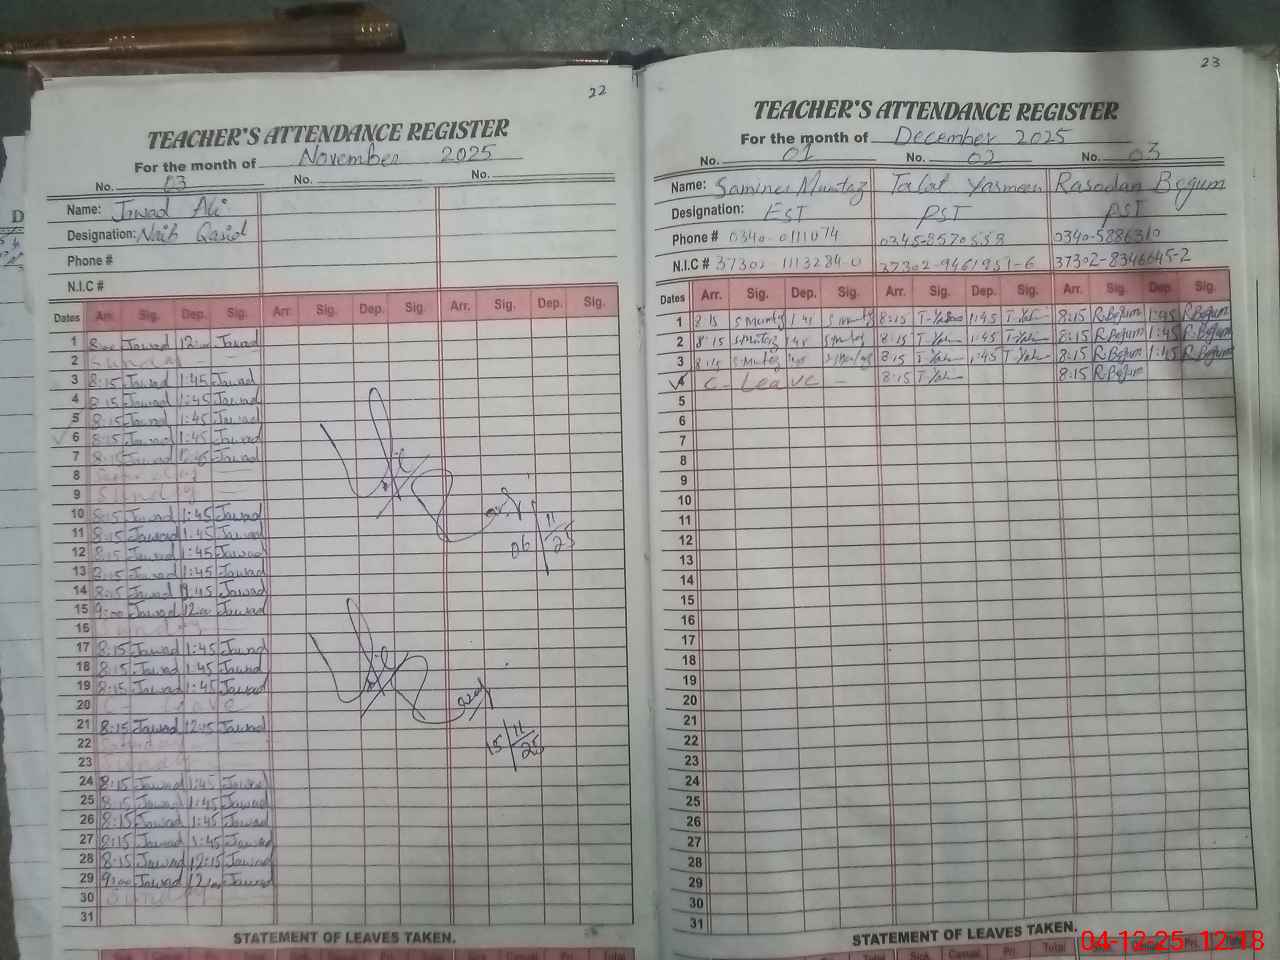 22
TEACHER'S ATTENDANCE REGISTER
For the month of November 2025
No. 03 No. No.
Name: Jawad Ali
Designation: Naib Qasid
Phone #
N.I.C #
Dates Arr. Sig. Dep. Sig. Arr. Sig. Dep. Sig. Arr. Sig. Dep. Sig.
1 8:00 Jawad 12:00 Jawad
2 Sunday
3 8:15 Jawad 1:45 Jawad
4 8:15 Jawad 1:45 Jawad
5 8:15 Jawad 1:45 Jawad
6 8:15 Jawad 1:45 Jawad
7 8:15 Jawad 1:45 Jawad
8
9 Sunday
10 8:15 Jawad 1:45 Jawad
11 8:15 Jawad 1:45 Jawad
12 8:15 Jawad 1:45 Jawad
13 8:15 Jawad 1:45 Jawad
14 8:15 Jawad 1:45 Jawad
15 9:00 Jawad 12:00 Jawad
16 Sunday
17 8:15 Jawad 1:45 Jawad
18 8:15 Jawad 1:45 Jawad
19 8:15 Jawad 1:45 Jawad
20 C- Leave
21 8:15 Jawad 12:15 Jawad
22 Saturday
23 Sunday
24 8:15 Jawad 1:45 Jawad
25 8:15 Jawad 1:45 Jawad
26 8:15 Jawad 1:45 Jawad
27 8:15 Jawad 1:45 Jawad
28 8:15 Jawad 12:15 Jawad
29 9:00 Jawad 12:00 Jawad
30 Sunday
31
06/11/25
15/11/25
STATEMENT OF LEAVES TAKEN.
23
TEACHER'S ATTENDANCE REGISTER
For the month of December 2025
No. 01 No. 02 No. 03
Name: Samina Mumtaz Talat Yasmeen Rasodan Begum
Designation: EST PST PST
Phone # 0340-0111074 0345-8570558 0340-5886310
N.I.C # 37302-1113284-0 37302-9461951-6 37302-8346645-2
Dates Arr. Sig. Dep. Sig. Arr. Sig. Dep. Sig. Arr. Sig. Dep. Sig.
1 8:15 S Mumtaz 1:45 S Mumtaz 8:15 T-Yas 1:45 T-Yas 8:15 R.Begum 1:45 R.Begum
2 8:15 S Mumtaz 1:45 S Mumtaz 8:15 T-Yas 1:45 T-Yas 8:15 R.Begum 1:45 R.Begum
3 8:15 S Mumtaz 1:45 S Mumtaz 8:15 T-Yas 1:45 T-Yas 8:15 R.Begum 1:45 R.Begum
4 C- Leave - 8:15 T-Yas 8:15 R.Begum
5
6
7
8
9
10
11
12
13
14
15
16
17
18
19
20
21
22
23
24
25
26
27
28
29
30
31
STATEMENT OF LEAVES TAKEN.
04-12-25 12:18